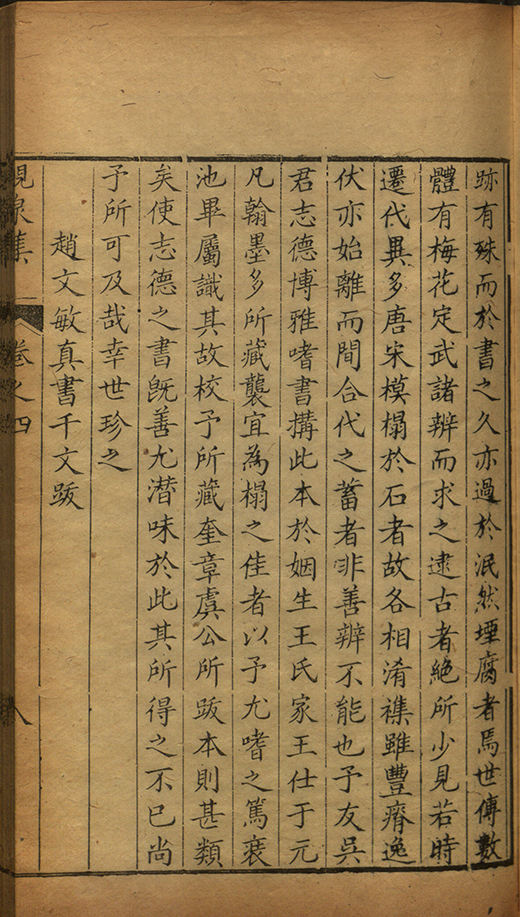 跡有殊而於書之久亦過於泯然堙腐者焉世傳數
體有梅花定武諸辨而求之逮古者絶所少見若時
遷代異多唐宋模榻於石者故各相淆襍雖豐瘠逸
伏亦始離而間合代之蓄者非善辨不能也予友吳
君志德博雅嗜書搆此本於姻生王氏家王仕于元
凡翰墨多所藏襲宜為榻之佳者以予尤嗜之篤裒
池畢屬識其故校予所藏奎章虞公所跋本則甚類
矣使志德之書旣善尤潜味於此其所得之不已尚
予所可及哉幸世珍之
趙文敏真書千文跋
峴泉集 卷之四 八